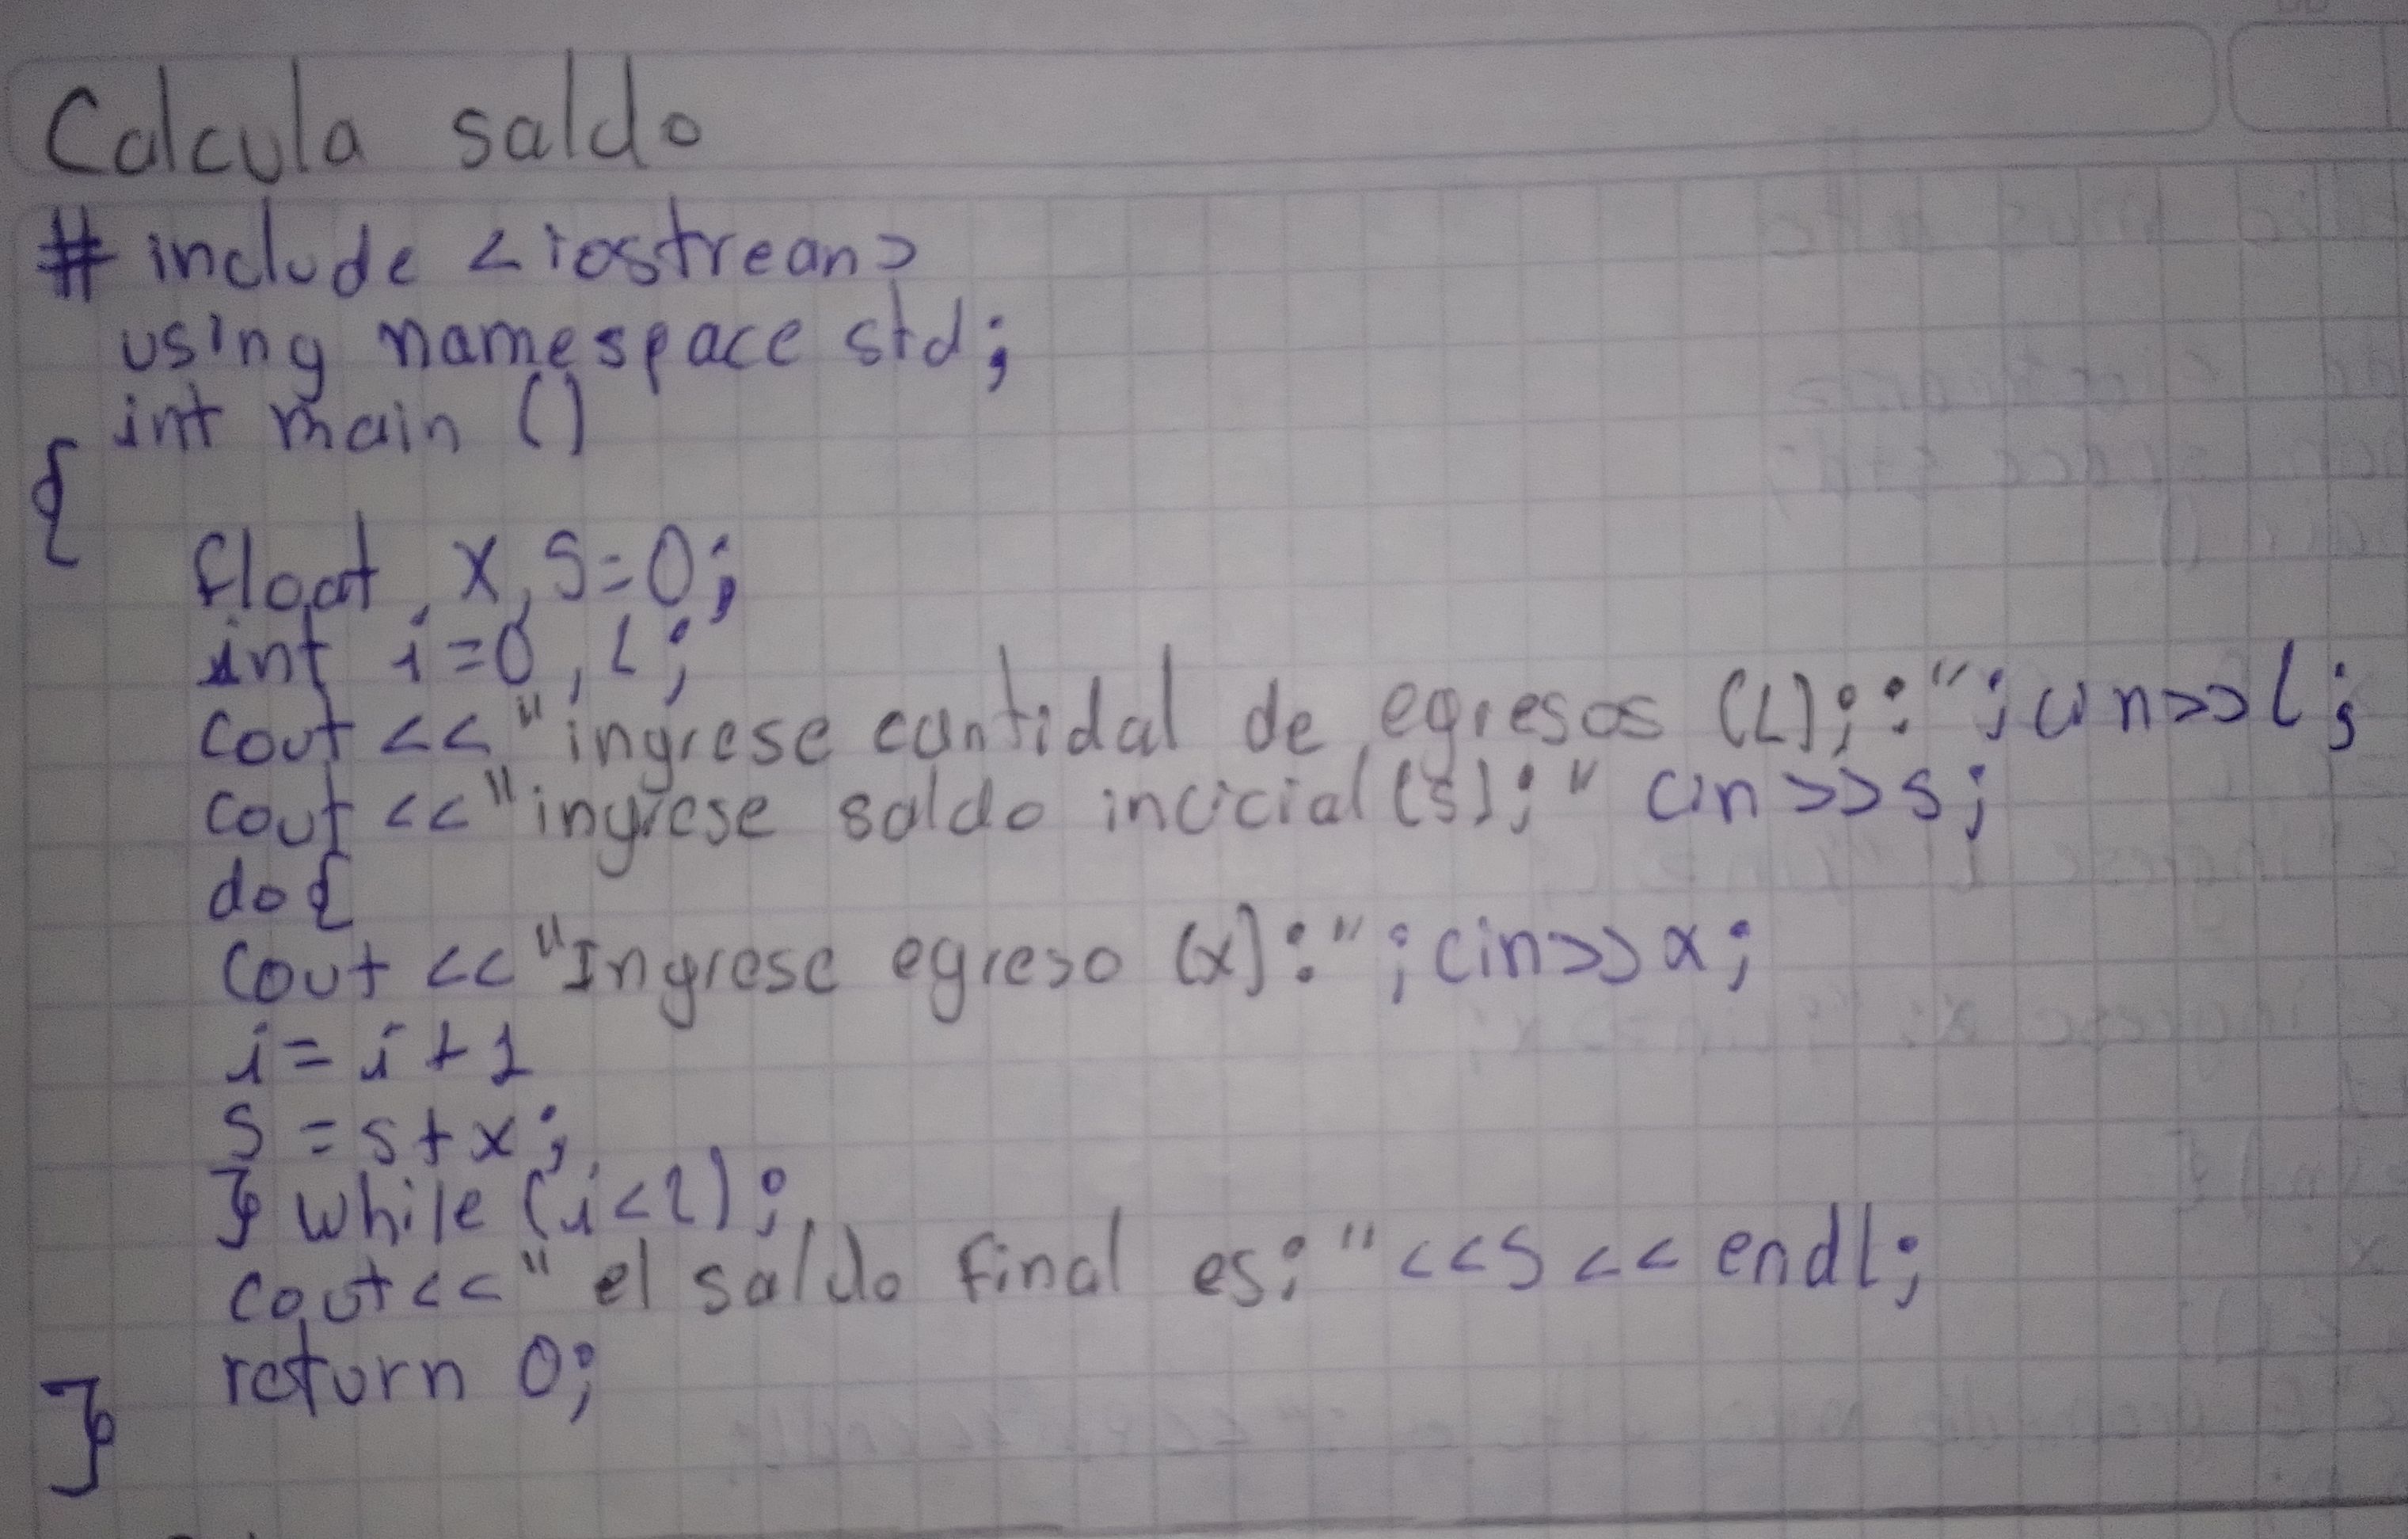 Calcula saldo
# include <iostrean>
using namespace std;
int main ()
{
float, x, s=0;
int i=0, l;
cout <<"ingrese cantidal de egresos (L);:"; cin>>l;
cout <<"ingrese saldo incicial (s);" cin>>s;
do{
cout <<"Ingrese egreso (x):"; cin>>x;
i=i+1
s=s+x;
} while (i<l);
cout<<" el saldo final es:"<<s<<endl;
return 0;
}